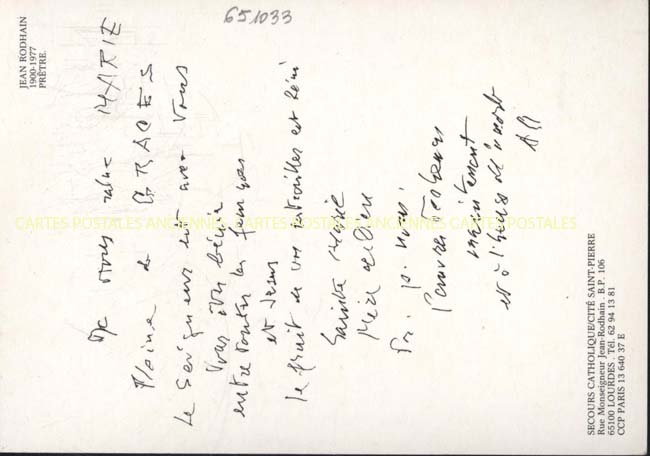 651033
JEAN RODHAIN
1900-1977
PRÊTRE.
Je vous salue MARIE
Pleine de GRACES
Le Seigneur est avec vous
Vous êtes bénie
entre toutes les femmes
et Jésus
le fruit de vos entrailles est béni
Sainte Marie
Mère de Dieu
Pr. p. nous
Pauvres Pécheurs
maintenant
et à l'heure de l'mort
CARTES POSTALES ANCIENNES CARTES POSTALES ANCIENNES CARTES POSTALES
SECOURS CATHOLIQUE/CITÉ SAINT-PIERRE
Rue Monseigneur Jean-Rodhain . B.P. 106
65100 LOURDES . Tél. 62 94 13 81
CCP PARIS 13 640 37 E